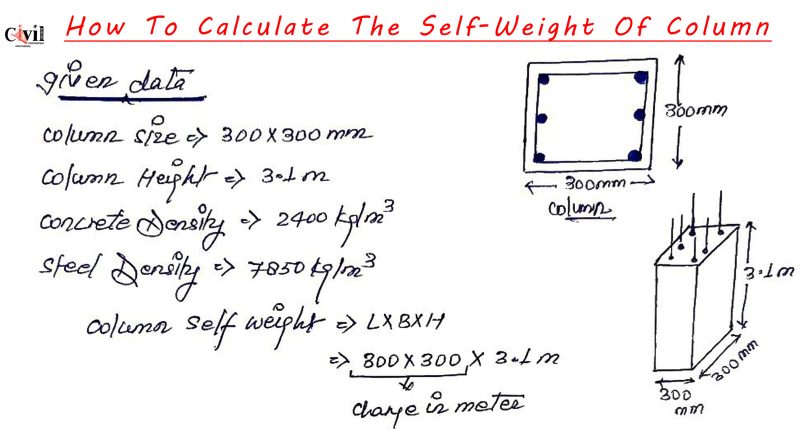 Civil
How To Calculate The Self-Weight Of Column
given data
column size => 300 X 300 mm
column Height => 3.1 m
concrete Density => 2400 kg/m³
steel Density => 7850 kg/m³
column self weight => LXBXH
=> 300 X 300 X 3.1 m
change in meter
300mm
300mm
column
3.1m
300mm
300
mm